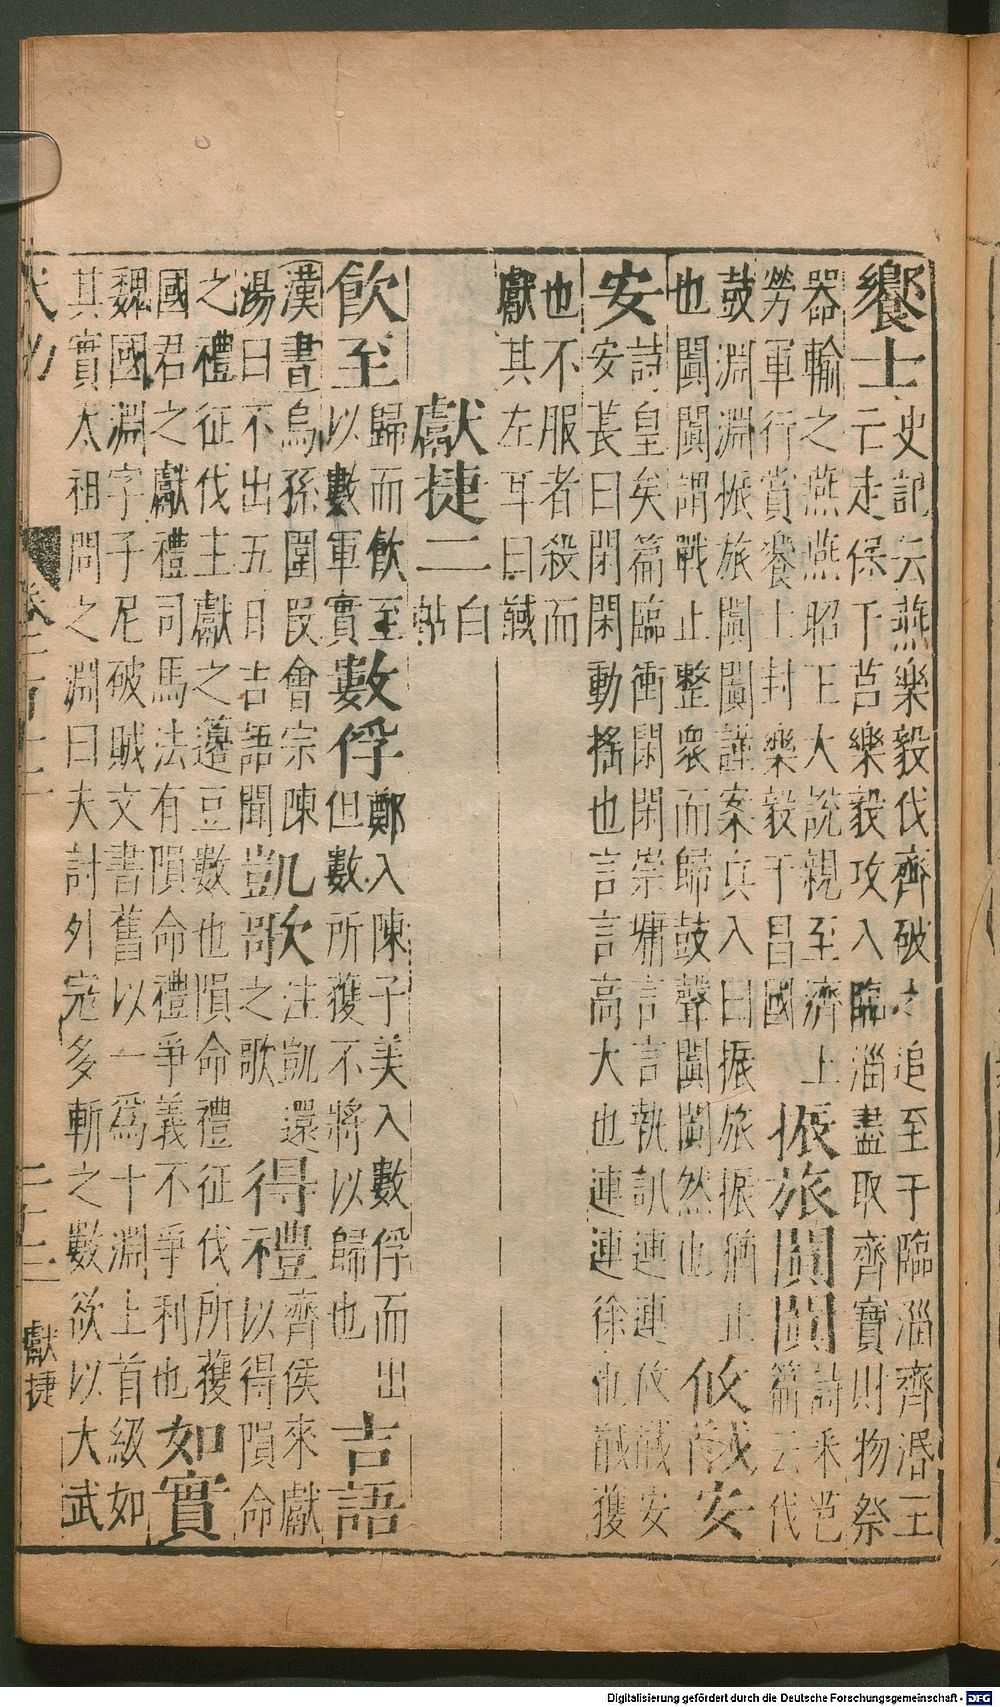 饗士史記云燕樂毅伐齊破之追至于臨淄齊湣王
亡走保于莒樂毅攻入臨淄盡取齊寶財物祭
器輸之燕燕昭王大說親至濟上
勞軍行賞饗士封樂毅于昌國振旅闐闐詩采芑
篇云伐
鼓淵淵振旅闐闐謹案兵入曰振旅振猶止
也闐闐謂戰止整衆而歸鼓聲闐闐然也攸馘安
安詩皇矣篇臨衝閑閑崇墉言言執訊連連攸馘安
安安萇曰閑閑動搖也言言高大也連連徐也馘獲
也不服者殺而
獻其左耳曰馘
獻捷二白帖
飲至歸而飲至以數軍實數俘鄭入陳子美入數俘而出
但數所獲不將以歸也吉語
漢書烏孫圍段會宗陳
湯曰不出五日吉語聞凱歌注凱還
豈歌之歌得禮齊侯來獻
以得隕命
之禮征伐主獻之籩豆數也隕命禮征伐所獲
國君之獻禮司馬法有隕命禮爭義不爭利也如實
魏國淵字子尼破賊文書舊以一爲十淵上首級如
其實太祖問之淵曰夫討外寇多斬之數欲以大武
武功
卷二百十二
二十三
獻捷
Digitalisierung gefördert durch die Deutsche Forschungsgemeinschaft - DFG